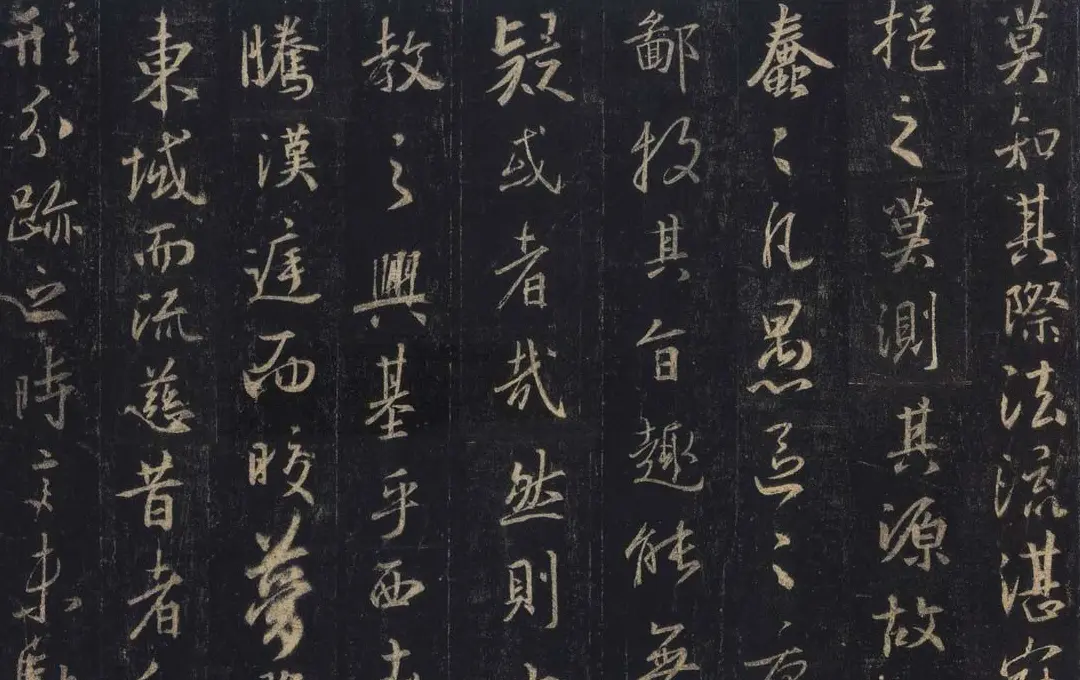 莫知其際法流湛寂
挹之莫測其源故
蠢〻凡愚區〻庸
鄙投其旨趣能無
疑或者哉然則
教之興基乎西土
騰漢庭而皎夢
東域而流慈昔者
形分跡之時言未馳